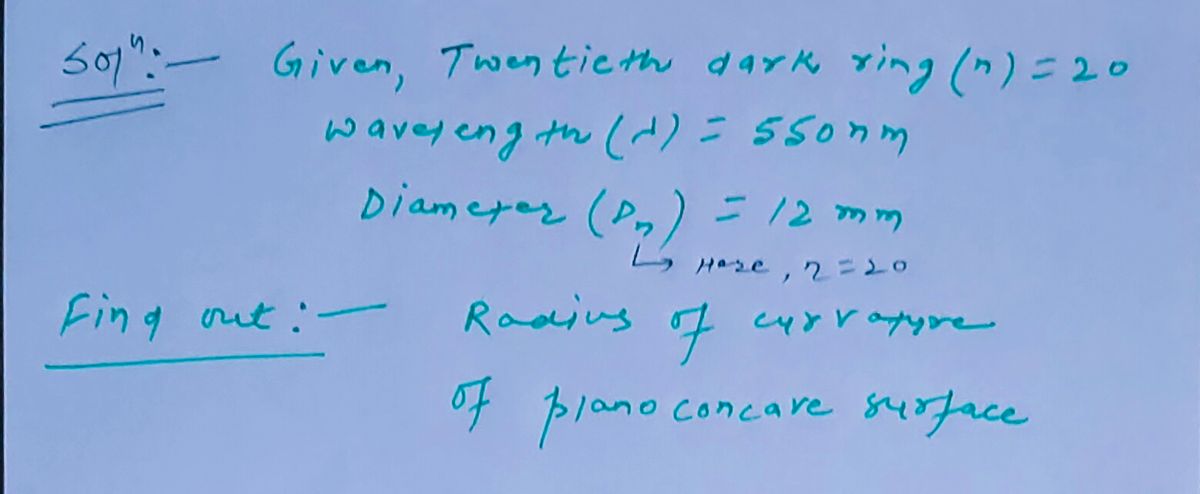 Solⁿ:— Given, Twentieth dark ring (n) = 20
wavelength (λ) = 550nm
Diameter (Dₙ) = 12 mm
↳ Here, n=20
Find out:— Radius of curvature
of plano concave surface